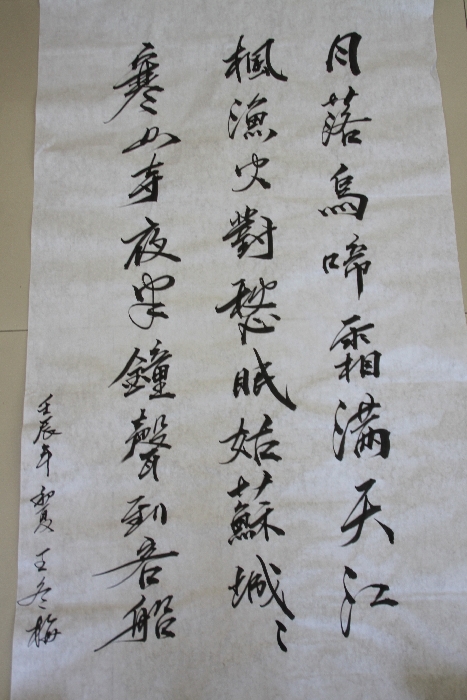 月落烏啼霜滿天江
楓漁火對愁眠姑蘇城〻
寒山寺夜半鐘聲到客船
壬辰年初夏 王冬梅